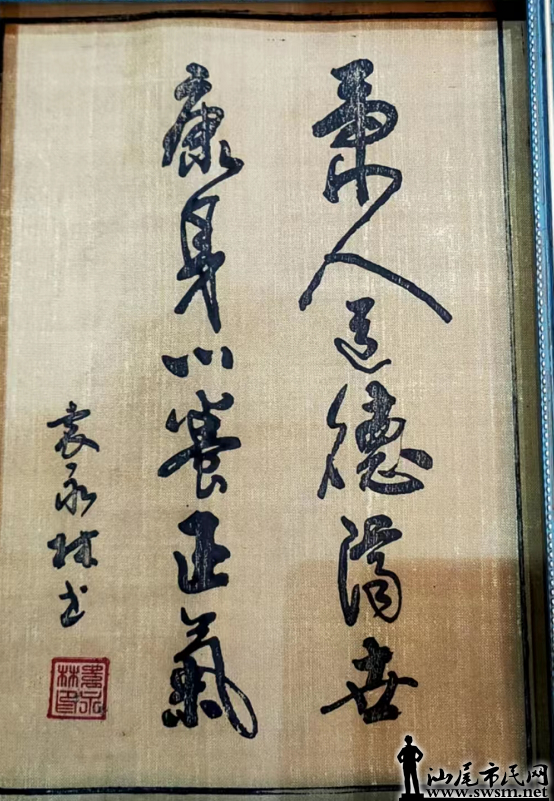 秉人道德濟世
康身心養正氣
袁永林书
袁永林印
汕尾市民网
www.swsm.net